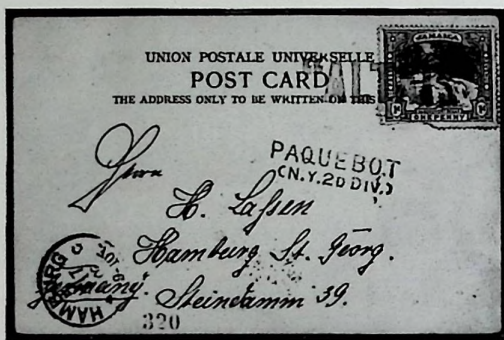 UNION POSTALE UNIVERSELLE
POST CARD
THE ADDRESS ONLY TO BE WRITTEN ON THIS
JAMAICA
ONE PENNY
PAQUEBOT
(N.Y. 2D DIV.)
Herrn
H. Lassen
Hamburg St. Georg.
Germany. Steindamm 39.
HAMBURG
320